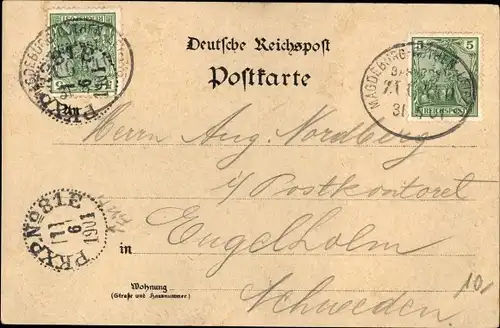 Deutsche Reichspost
Postkarte
5
REICHSPOST
MAGDEBURG
31
Herrn Aug. Nordberg
Postkontoret
in Engelholm
Schweden
Wohnung
(Straße und Hausnummer)
PKXP No 81E
11
6
1901
101